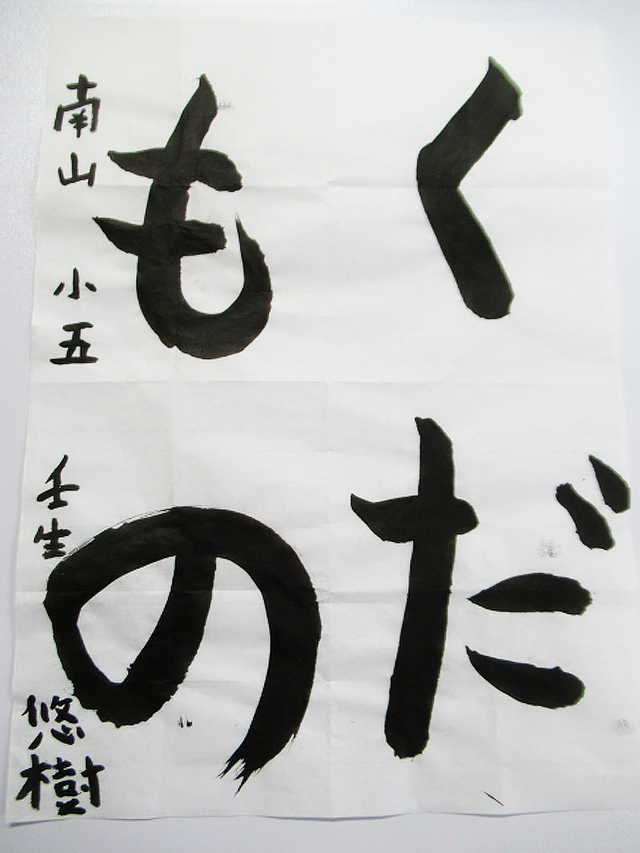 くだ
もの
南山 小五 壬生 悠樹